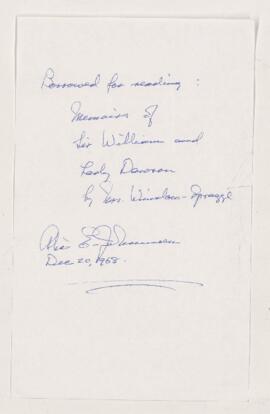 Borrowed for reading:
Memoirs of
Sir William and
Lady Dawson
by Mrs. Winslow-Spragge
Alice E.
Dec 20, 1968.